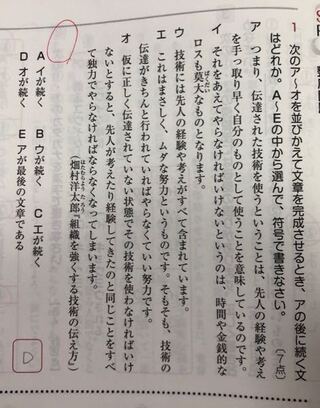 1 次のア〜オを並びかえて文章を完成させるとき、アの後に続く文
はどれか。A〜Eの中から選んで、符号で書きなさい。(7点)
ア つまり、伝達された技術を使うということは、先人の経験や考え
を手っ取り早く自分のものとして使うことを意味しているのです。
イ それをあえてやらなければいけないというのは、時間や金銭的な
ロスも莫大なものとなります。
ばくだい
ウ 技術には先人の経験や考えがすべて含まれています。
エ これはまさしく、ムダな努力というものです。そもそも、技術の
伝達がきちんと行われていればやらなくていい努力です。
オ 仮に正しく伝達されていない状態でその技術を使わなければいけ
ないとすると、先人が考えたり経験してきたのと同じことをすべ
て独力でやらなければならなくなってしまいます。
(畑村洋太郎『組織を強くする技術の伝え方』)
はたむらようたろう
A イが続く B ウが続く C エが続く
D オが続く E アが最後の文章である
D